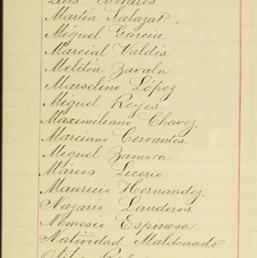 Luis Morales.
Martin Salazar.
Miguel Garcia
Marcial Valdés.
Melitón Zavala
Marselino López
Miguel Reyes.
Maximiliano Chavez.
Marciano Cervantes.
Miguel Zamora
Márcos Licerio
Mauricio Hernandez.
Nazario Landeros.
Nemesio Espinosa
Natividad Maldonado